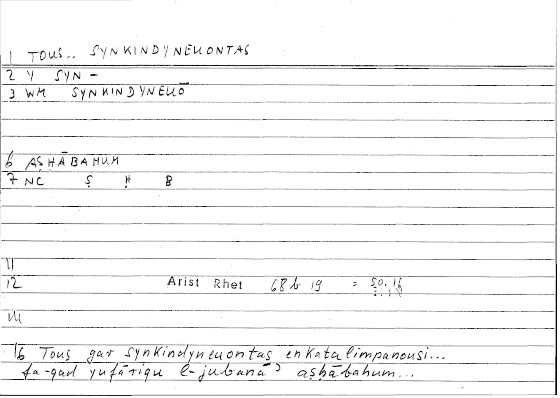 1 TOUS.. SYNKINDYNEUONTAS
2 Y SYN -
3 WM SYNKINDYNEUŌ
6 AṢḤĀBAHUM
7 NC Ṣ Ḥ B
11
12 Arist Rhet 68b 19 = 50.16
16 Tous gar synkindyneuontas enkatalimpanousi...
fa-qad yufāriqu l-jubanāʾ aṣḥābahum...